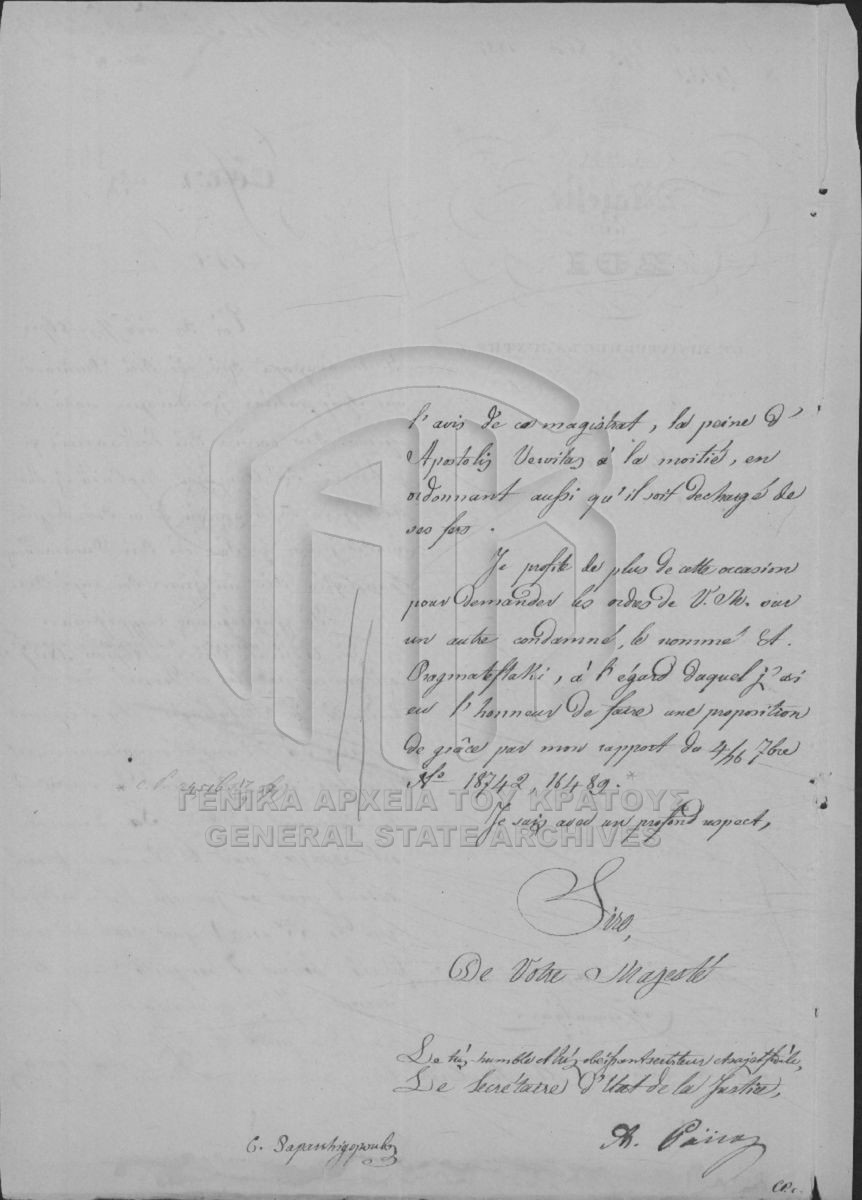 l'avis de ce magistrat, la peine d'
Apostolis Vervitas à la moitié, en
ordonnant aussi qu'il soit dechargé de
ses fers.
Je profite de plus de cette occasion
pour demander les ordres de V. M. sur
un autre condamné, le nommé A.
Pragmateftaki, à l'égard duquel j'ai
eu l'honneur de faire une proposition
de grâce par mon rapport du 4/16 7bre
No 18742, 16489.*
Je suis avec un profond respect,
Sire,
De Votre Majesté
Le très-humble et très obéissant serviteur et sujet fidèle,
Le Secrétaire d'Etat de la Justice,
A. Païcos
C. Paparrhigopoulos
ΓΕΝΙΚΑ ΑΡΧΕΙΑ ΤΟΥ ΚΡΑΤΟΥΣ
GENERAL STATE ARCHIVES